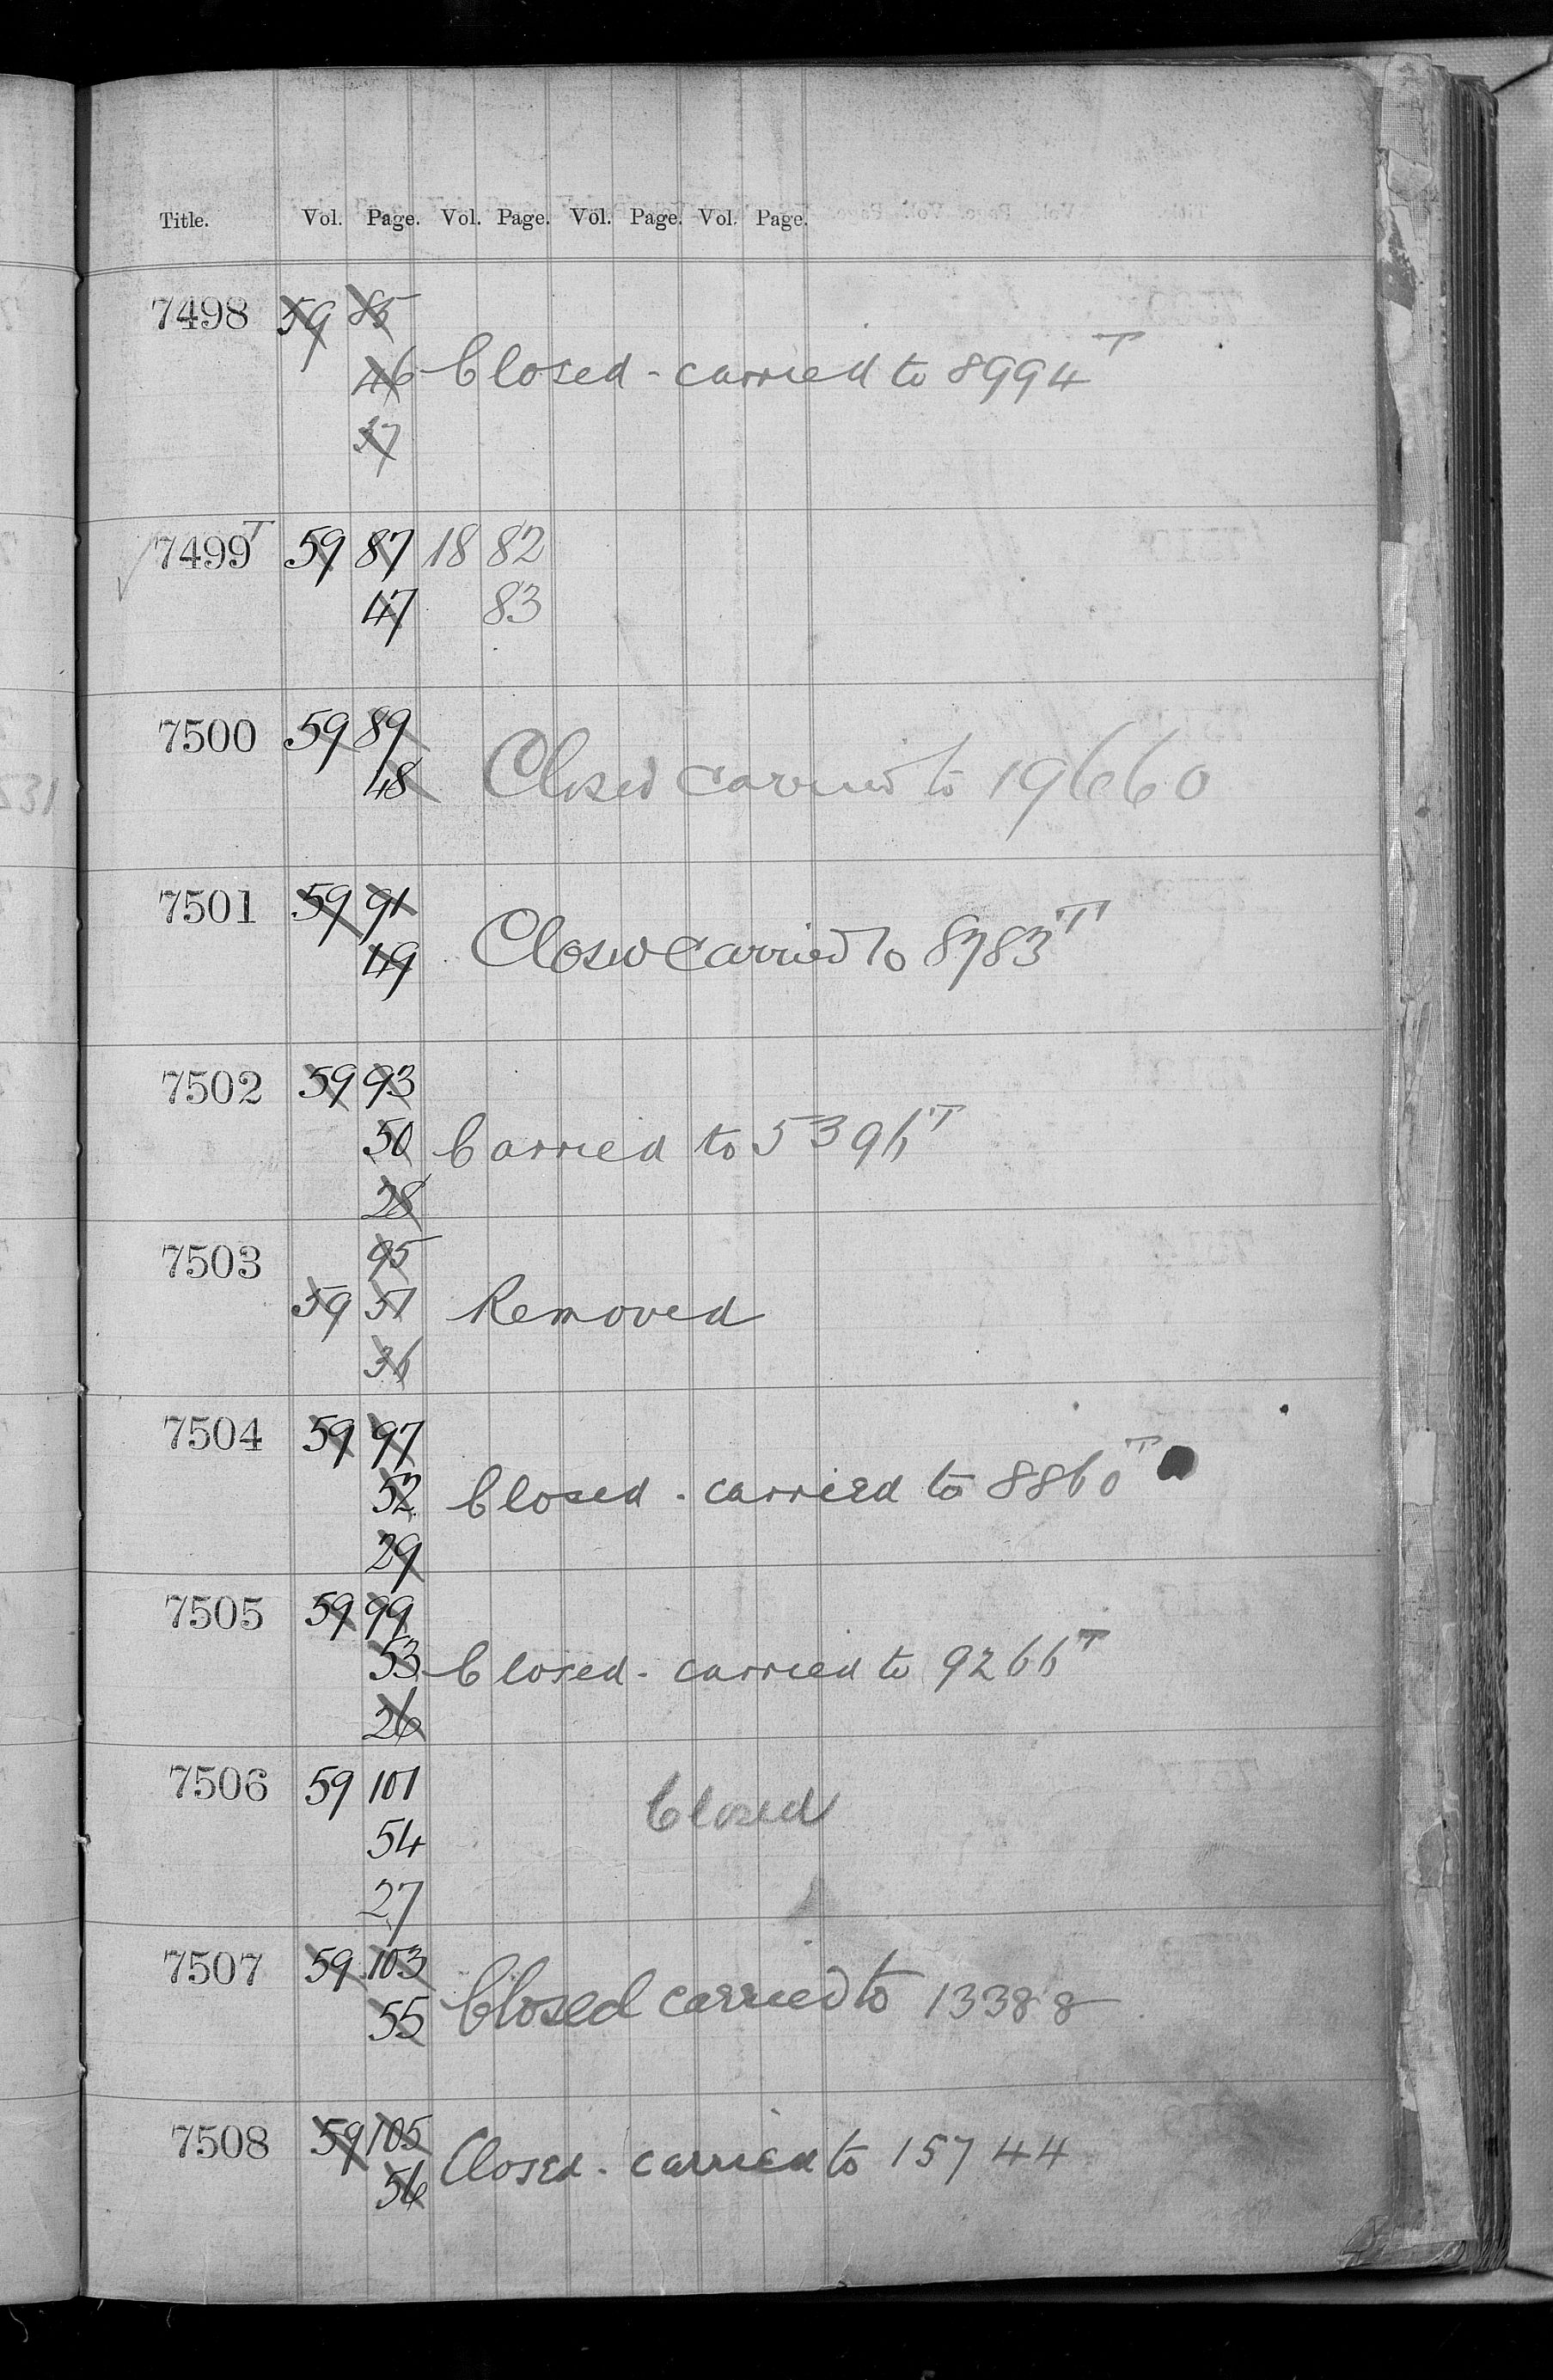 Title. Vol. Page. Vol. Page. Vol. Page. Vol. Page.
7498 59 85
46 Closed - carried to 8994 T
37
7499 T 59 87 18 82
47 83
7500 59 89
48 Closed carried to 19660
7501 59 91
49 Closed carried to 8783 T
7502 59 93
50 Carried to 5396 T
28
7503 95
59 51 Removed
36
7504 59 97
52 Closed - carried to 8860 T
29
7505 59 99
53 Closed - carried to 9266 T
26
7506 59 101
Closed
54
27
7507 59 103
55 Closed carried to 13388
7508 59 105
56 Closed - carried to 15744